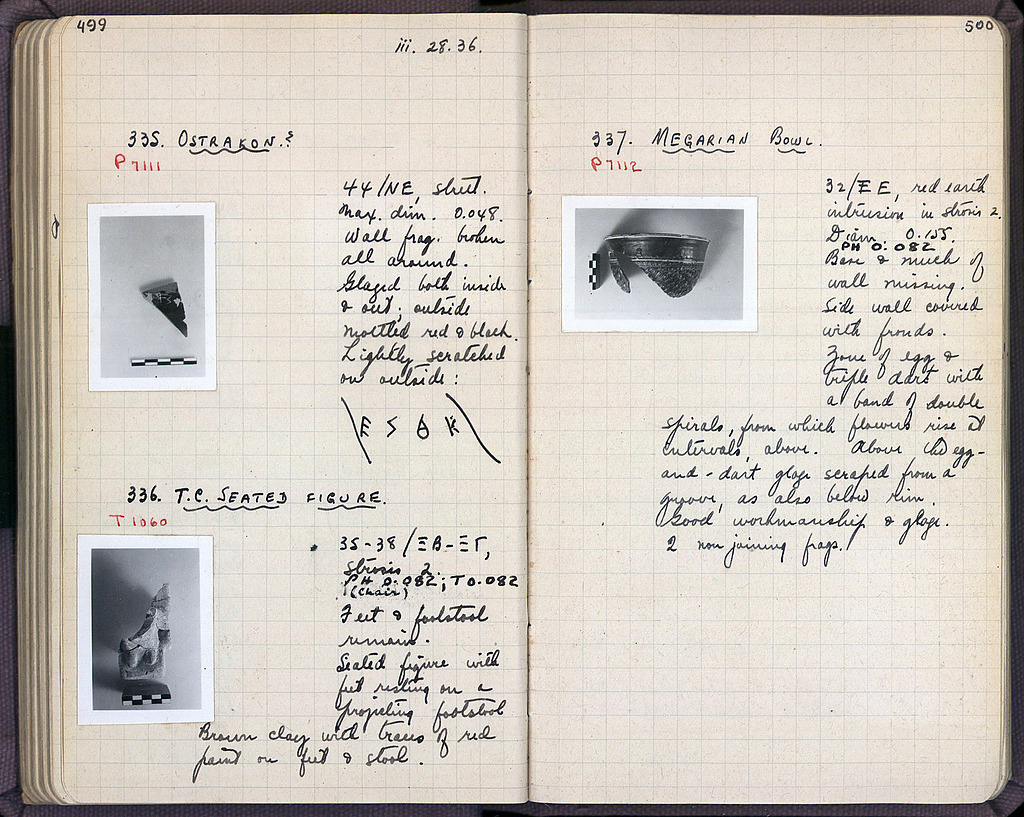 499
iii. 28. 36.
335. OSTRAKON.?
P 7111
44/NE, street.
Max. dim. 0.048.
Wall frag. broken
all around.
Glazed both inside
& out; outside
mottled red & black.
Lightly scratched
on outside:
336. T.C. SEATED FIGURE.
T 1060
35-38/ΞB-ΞΓ,
Strosis 2.
PH 0.082; T 0.082
(chair)
Feet & footstool
remain.
Seated figure with
feet resting on a
projecting footstool
Brown clay with traces of red
paint on feet & stool.
500
337. MEGARIAN BOWL.
P 7112
32/ΞE, red earth
intrusion in strosis 2.
Diam. 0.155.
PH 0.082
Base & much of
wall missing.
Side wall covered
with fronds.
Zone of egg &
triple dart with
a band of double
spirals, from which flowers rise at
intervals, above. Above the egg-
and-dart glaze scraped from a
groove, as also below rim.
Good workmanship & glaze.
2 non joining frags.